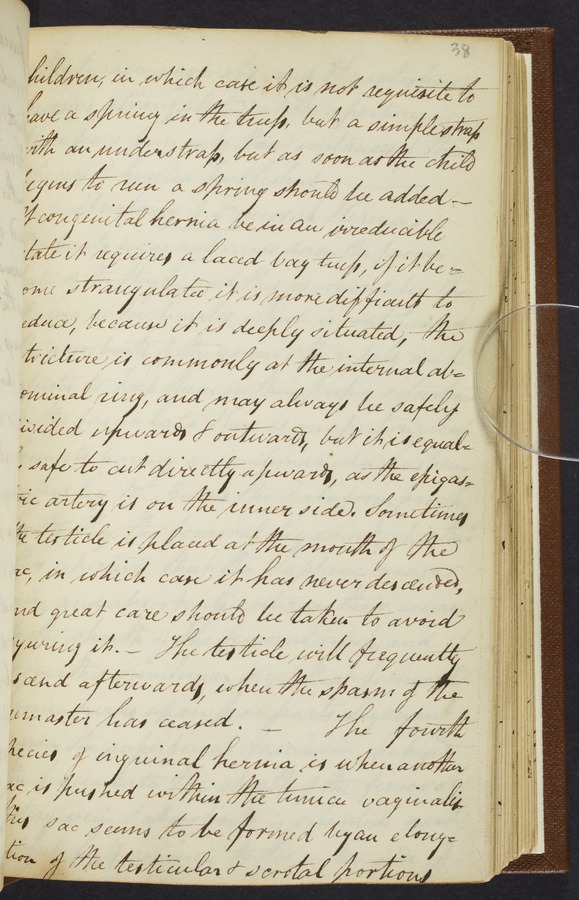 38
hildren, in which case it is not requisite to
have a spring in the truss, but a simple strap
with an understrap, but as soon as the child
begins to run a spring should be added —
If congenital hernia be in an irreducible
state it requires a laced bag truss, if it be=
ome strangulated it is more difficult to
educe, because it is deeply situated, the
tricture is commonly at the internal ab=
ominal ring, and may always be safely
ivided upwards & outwards, but it is equal=
safe to cut directly upwards, as the epigas=
ric artery is on the inner side. Sometimes
the testicle is placed at the mouth of the
ac, in which case it has never descended,
nd great care should be taken to avoid
juring it. — The testicle will frequently
scend afterwards, when the spasm of the
emaster has ceased. — The fourth
pecies of inguinal hernia is when another
ac is pushed within the tunica vaginalis
this sac seems to be formed by an elong=
tion of the testicular & scrotal portions